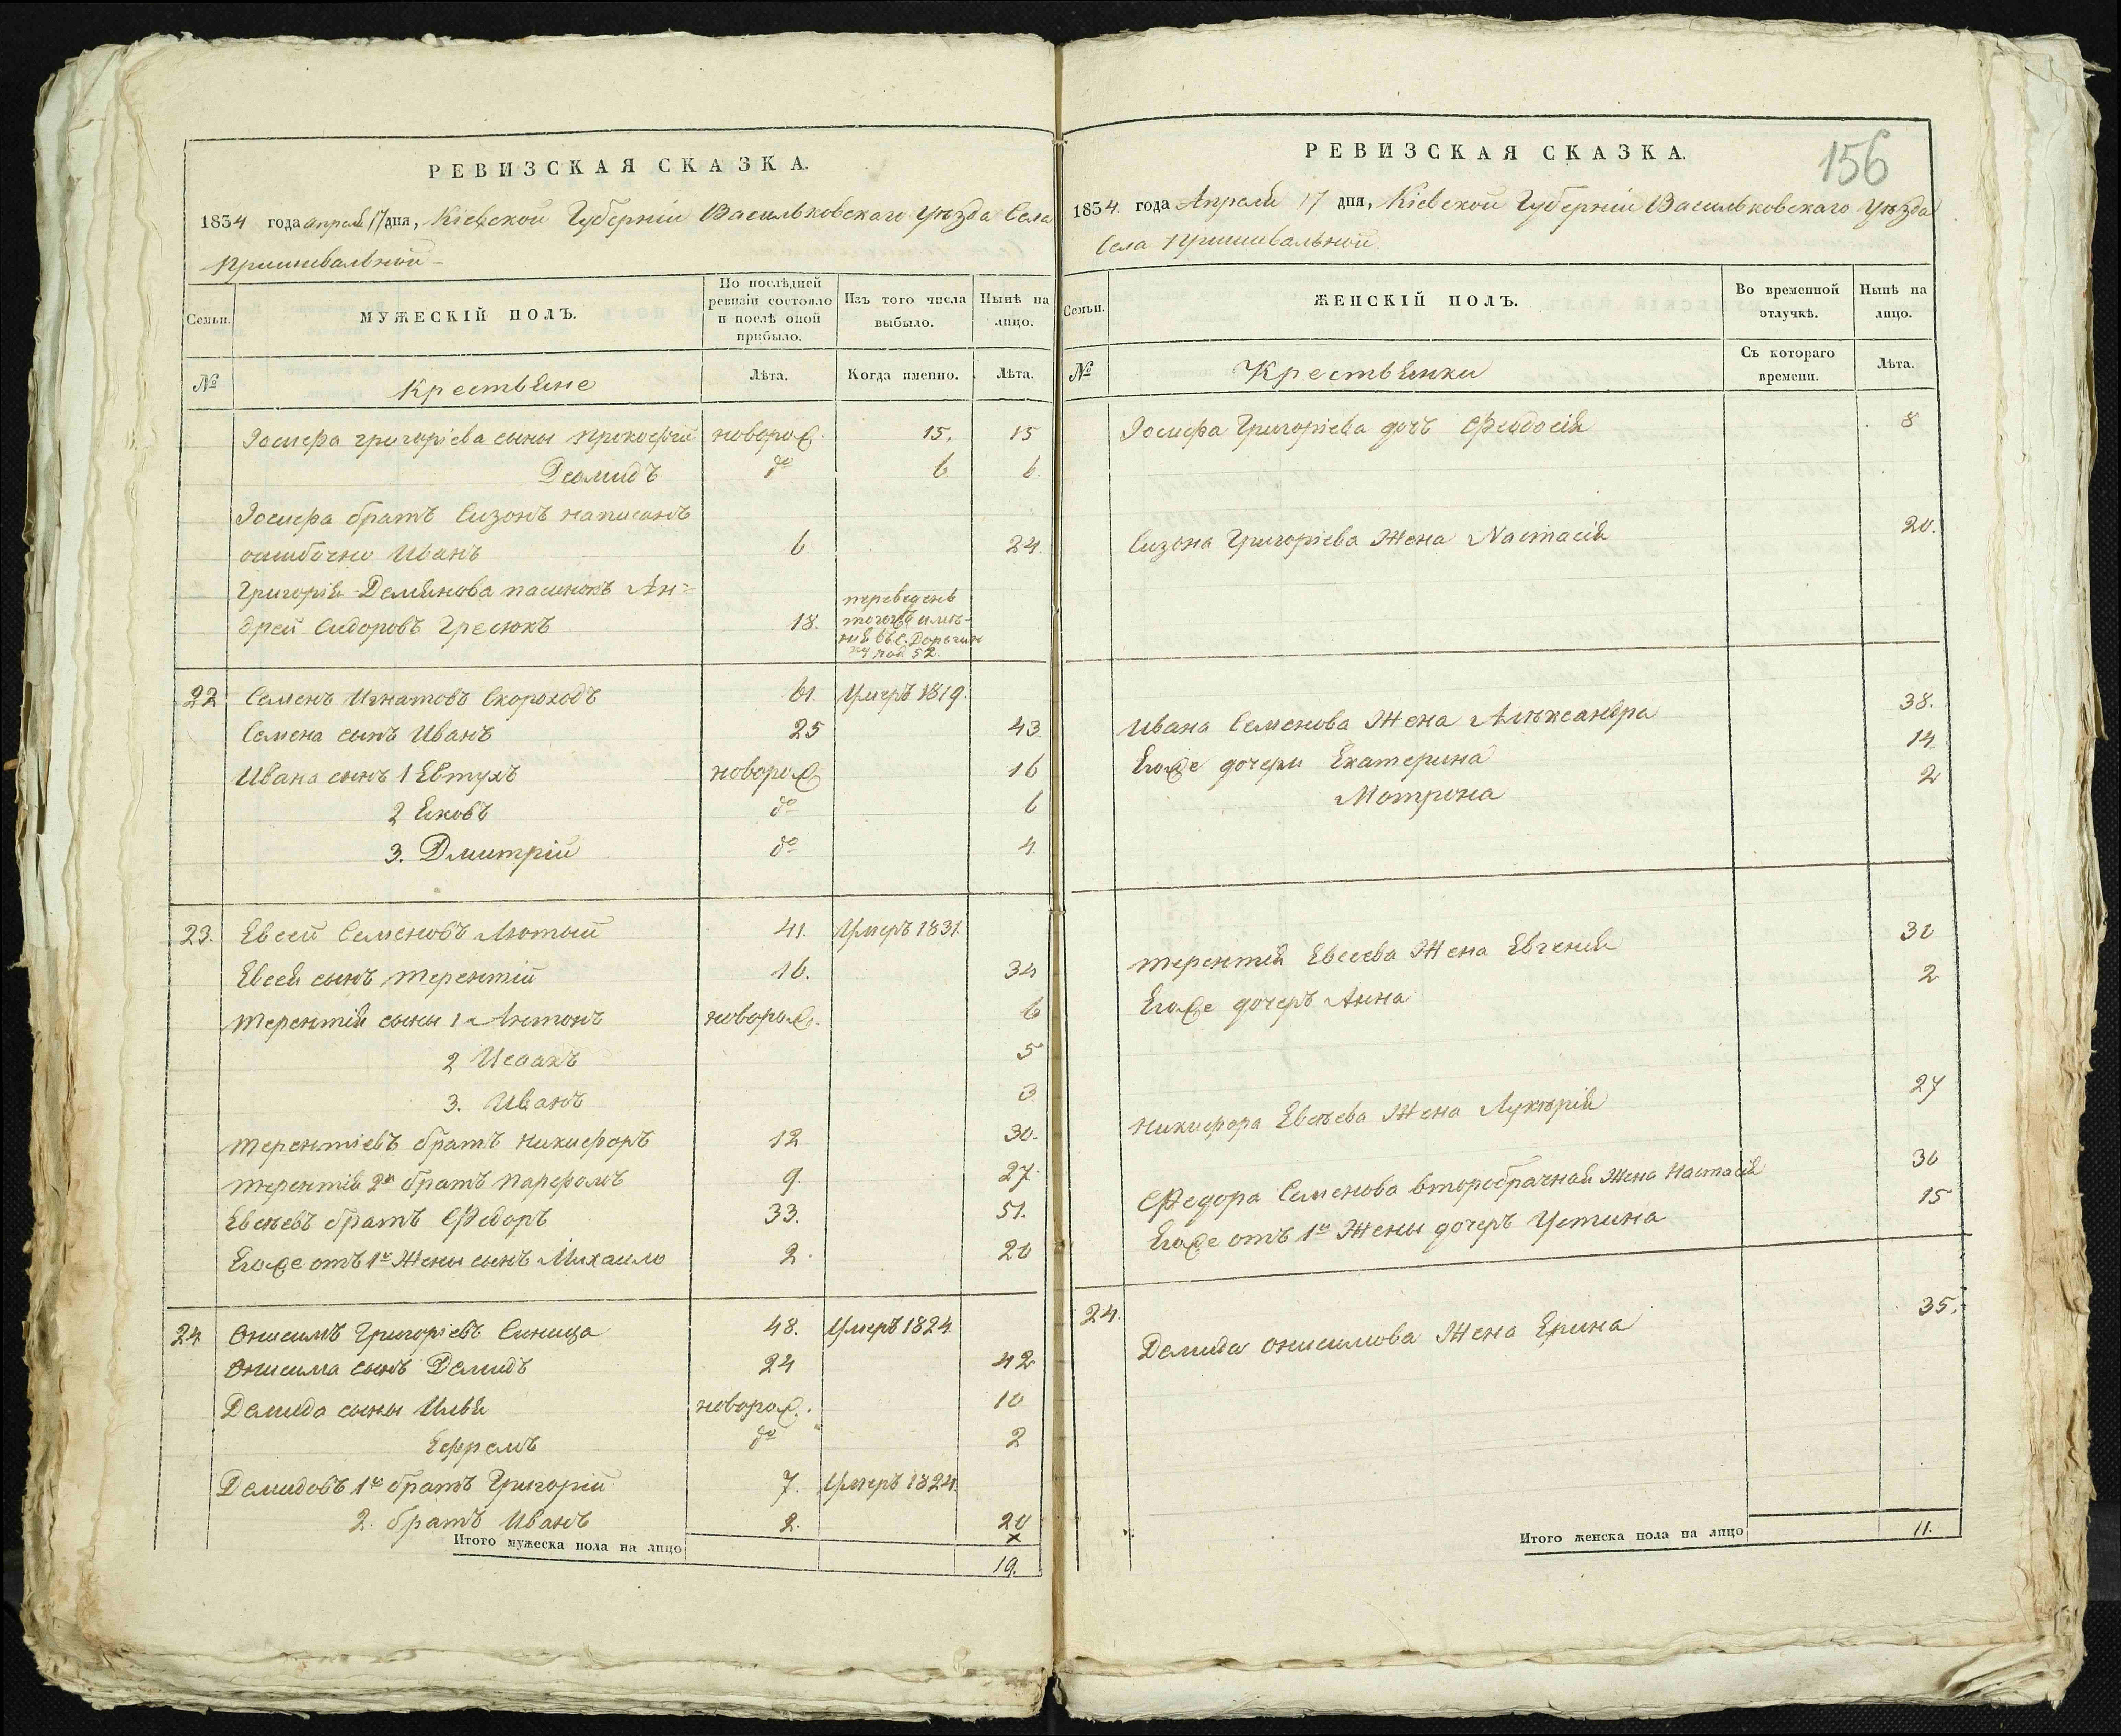 РЕВИЗСКАЯ СКАЗКА.
1834 года апреля 17 дня, Кіевской Губерніи Васильковскаго уѣзда Села
Пришивальной
Семьи.
МУЖЕСКІЙ ПОЛЪ.
По послѣдней ревизіи состояло и послѣ оной прибыло.
Изъ того числа выбыло.
Нынѣ на лицо.
№
Крестьяне
Лѣта.
Когда именно.
Лѣта.
Іосифа григоріева сыны Прокофій новорож. 15. 15
Демидъ до 6 6
Іосифа братъ Сизонъ написанъ
ошибочно Иванъ 6 24.
Григорія Демянова пасынокъ Ан=
дрей Сидоровъ Гресюкъ 18. переведенъ
тогожъ имѣ-
нія въ с. Дорогин
ку под 52.
22 Семенъ Игнатовъ Скороходъ 61. Умеръ 1819.
Семена сынъ Иванъ 25 43.
Ивана сынъ 1 Евтухъ новорож 16
2 Яковъ до 6
3. Дмитрій до 4.
23. Евсей Семеновъ Лютый 41. Умеръ 1831.
Евсея сынъ Терентій 16. 34
Терентія сыны 1 Антонъ новорож. 6
2 Исаакъ 5
3. Иванъ 3
Терентіевъ братъ Никифоръ 12 30.
Терентія 2й братъ Парфемъ 9. 27.
Евсѣевъ братъ Федоръ 33. 51.
Егоже отъ 1й Жены сынъ Михаило 2. 20
24 Онисимъ Григоріевъ Синица 48. Умеръ 1824.
Онисима сынъ Демидъ 24 42
Демида сыны Илья новорож. 10
Ефремъ до 2
Демидовъ 1й братъ Григорій 7. Умеръ 1824.
2. братъ Иванъ 2. 20
Итого мужеска пола на лицо 19.
156
РЕВИЗСКАЯ СКАЗКА.
1834 года Апреля 17 дня, Кіевской Губерніи Васильковскаго уѣзда
Села Пришивальной
Семьи.
ЖЕНСКІЙ ПОЛЪ.
Во временной отлучкѣ.
Нынѣ на лицо.
№
Крестьянки
Съ котораго времени.
Лѣта.
Іосифа Григоріева дочъ Феодосія 8
Сизона Григоріева Жена Настасія 20.
Ивана Семенова Жена Алѣксандра 38.
Егоже дочери Екатерина 14
Мотрона 2
Терентія Евсеева Жена Евгенія 30
Егоже дочеръ Анна 2
Никифора Евсѣева Жена Лукѣрія 27
Федора Семенова второбрачная Жена Настасія 36
Егоже отъ 1й Жены дочеръ Устина 15
24. Демида Онисимова Жена Ерина 35.
Итого женска пола на лицо 11.